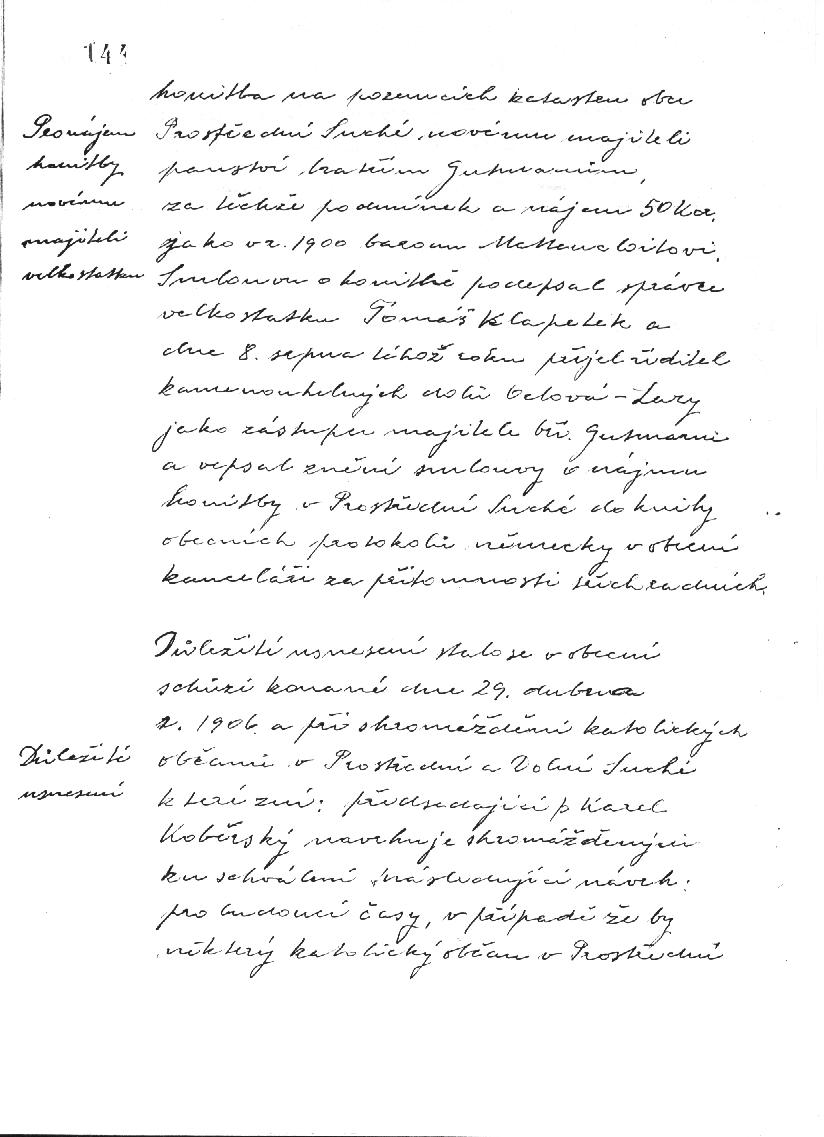 144
honitba na pozemcích katastru obce
Pronájem
honitby
novému
majiteli
velkostatku
Prostřední Suché, novému majiteli
panství, bratřím Gutmanům,
za těchže podmínek a nájem 50 Kor.
jako v r. 1900 baronu
Smlouvu o honitbě podepsal správce
velkostatku Tomáš Klapetek a
dne 8. srpna téhož roku přijel ředitel
kamenouhelných dolů Orlová-Lazy
jako zástupce majitele bří. Gutmanni
a vepsal znění smlouvy o nájmu
honitby v Prostřední Suché do knihy
obecních protokolů německy v obecní
kanceláři za přítomnosti všech radních.
Důležité usnesení stalo se v obecní
schůzi konané dne 29. dubna
r. 1906 a při shromáždění katolických
Důležité
usnesení
občanů v Prostřední a Dolní Suché
které zní: předsedající p Karel
Koběrský navrhuje shromážděným
ku schválení následující návrh:
pro budoucí časy, v případě že by
některý katolický občan v Prostřední